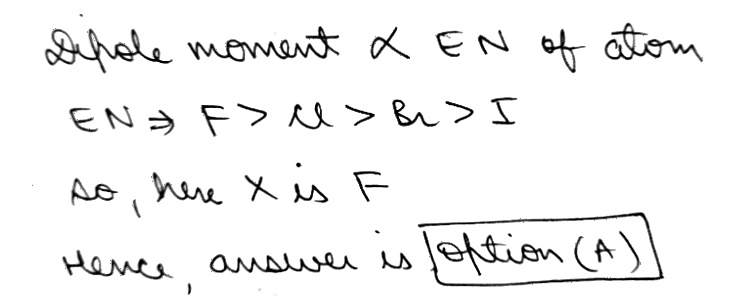 Dipole moment ∝ EN of atom
EN ⇒ F > Cl > Br > I
so, here X is F
Hence, answer is option (A)